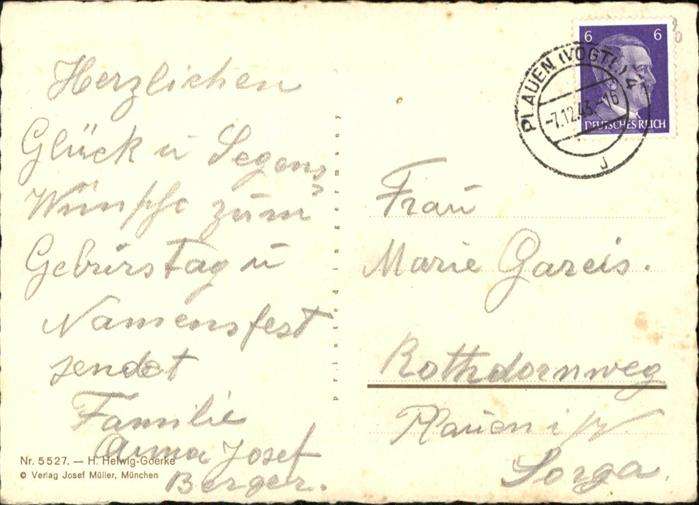 Herzlichen
Glück u Segens
Wünsche zum
Geburstag u
Namensfest
sendet
Familie
Anna Josef
Berger.
Nr. 5527. — H. Helwig-Goerke
© Verlag Josef Müller, München
6 6
DEUTSCHES REICH
PLAUEN (VOGTL) 4
-7.12.43.-16
J
Frau
Marie Gareis.
Rothdornweg
Plauen i/V
Sorga.